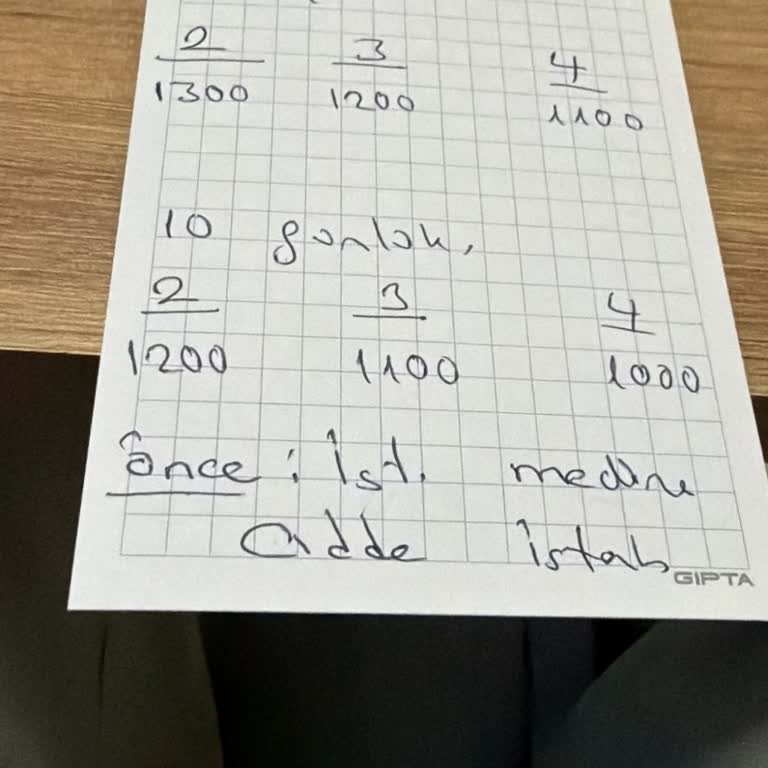 2 3 4
1300 1200 1100
10 günlük,
2 3 4
1200 1100 1000
önce : İst. medine
Cidde istab
GIPTA